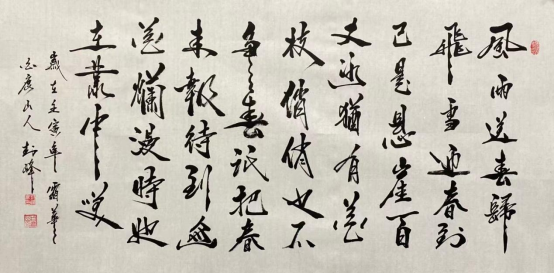 風雨送春歸
飛雪迎春到
已是悬崖百
丈冰猶有花
枝俏俏也不
争春祇把春
来報待到山
花爛漫時她
在叢中笑
歲在壬寅年
山人